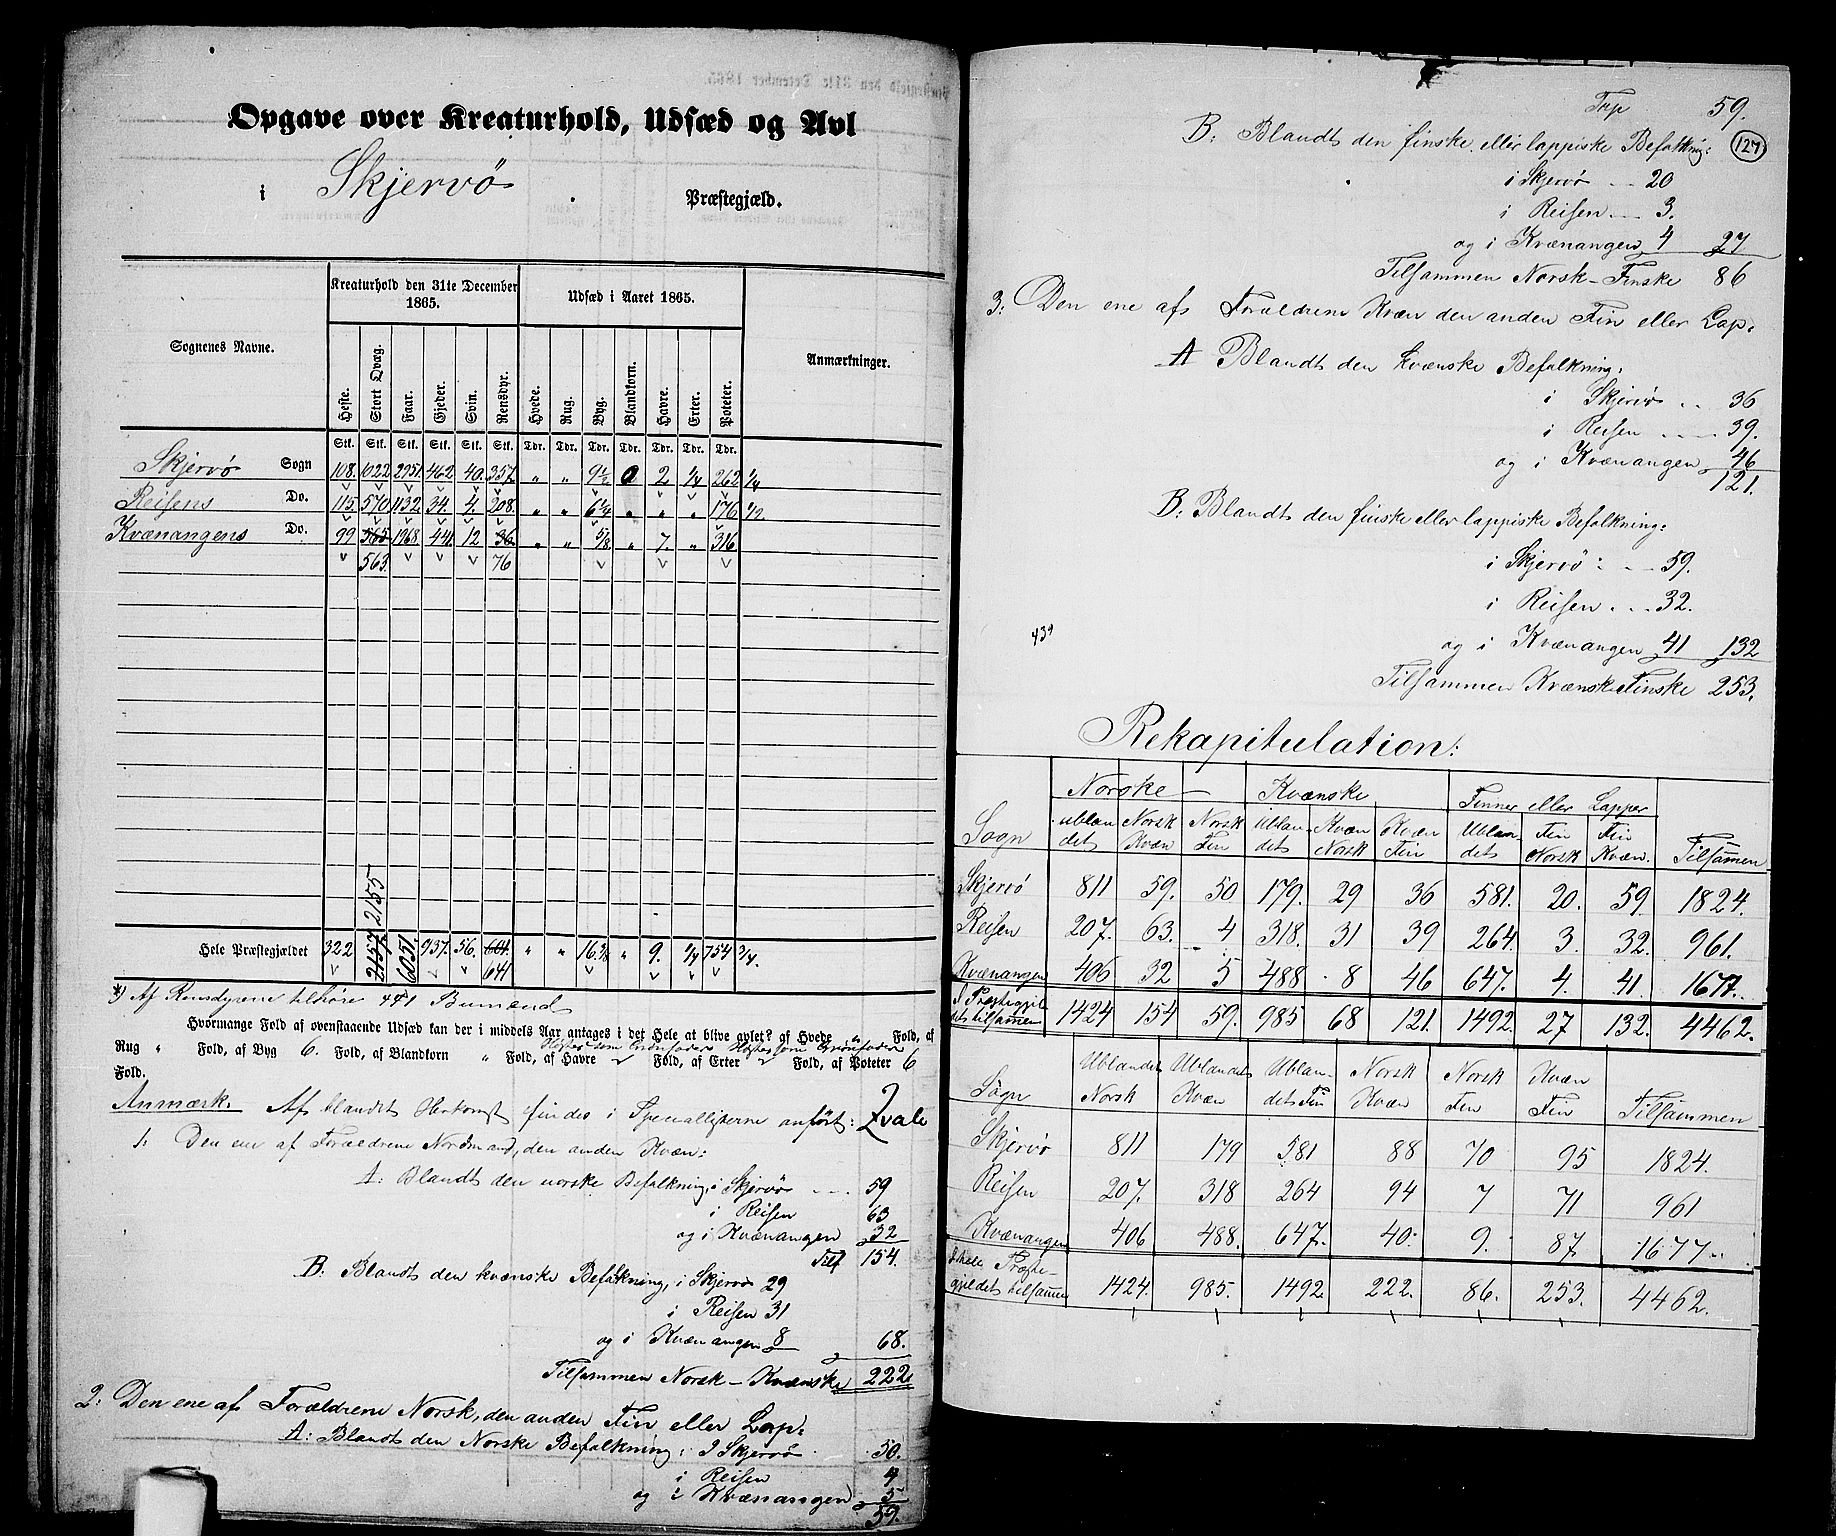 Opgave over Kreaturhold, Udsæd og Avl
i Skjervö Præstegjæld.
Sognenes Navne. Kreaturhold den 31te December 1865. Udsæd i Aaret 1865. Anmærkninger.
Heste. Stort Qvæg. Faar. Gjeder. Svin. Rensdyr. Hvede. Rug. Byg. Blandkorn. Havre. Erter. Poteter.
Stk. Stk. Stk. Stk. Stk. Stk. Tdr. Tdr. Tdr. Tdr. Tdr. Tdr. Tdr.
Skjervö Sogn 108. 1022 2951 462 40. 357. " " 9½ 0 2 ¼ 262 ¼
Reisens Do. 115. 570 1132 34. 4. 208. " " 6¼ " " " 176 ½
Kvænangens Do. 99 565 1968 441. 12 36 " " ⅝ " 7. " 316
563. 76
2155
Hele Præstegjældet 322 2157 6051. 937. 56. 601. " " 16⅜ " 9. ¼ 754 ¾.
641
*) Af Rensdyrene tilhöre 441 Bumænd
Hvormange Fold af ovenstaaende Udsæd kan der i middels Aar antages i det Hele at blive avlet? af Hvede " Fold, af
Rug " Fold, af Byg 6. Fold, af Blandkorn " Fold, af Havre Höstes som Grönfoder Fold, af Erter Höstes som Grönfoder Fold, af Poteter 6
Fold.
Anmærk. Af blandet Herkomst findes i Speciallisterne anfört:
1: Den ene af Forældrene Nordmand, den anden Kvæn:
A: Blandt den norske Befolkning, i Skjervö .... 59
i Reisen 63
og i Kvænangen 32
Tils 154.
B. Blandt den kvænske Befolkning, i Skjervö 29
i Reisen 31
og i Kvænangen 8 68.
Tilsammen Norsk-Kvænske 222
2: Den ene af Forældrene Norsk, den anden Fin eller Lap:
A: Blandt den Norske Befolkning: I Skjervö 50.
i Reisen 4
og i Kvænangen 5
59.
Trp 59.
127
B: Blandt den finske eller lappiske Befolkning:
i Skjervö ... 20
i Reisen ... 3.
og i Kvænangen 4 27
Tilsammen Norsk-Finske 86
3: Den ene af Forældrene Kvæn den anden Fin eller Lap:
A Blandt den Kvænske Befolkning:
i Skjervö .. 36
i Reisen .... 39.
og i Kvænangen 46
121.
B: Blandt den finske eller lappiske Befolkning:
i Skjervö: .. 59.
i Reisen ... 32.
439
og i Kvænangen 41 132
Tilsammen Kvænske Finske 253.
Rekapitulation:
Sogn Norske Kvænske Finner eller Lapper Tilsammen
ublandets Norsk Kvæn Norsk Fin Ublandets Kvæn Norsk Kvæn Fin Ublandets Fin Norsk Fin Kvæn.
Skjervö 811 59. 50 179. 29 36 581. 20. 59. 1824.
Reisen 207. 63. 4 318. 31 39 264. 3. 32. 961.
Kvænangen 406 32 5 488 8 46 647. 4. 41. 1677.
I Præstegjeldets tilsamen 1424 154 59. 985 68 121. 1492. 27 132. 4462.
Sogn Ublandet Norsk Ublandet Kvæn Ublandets Fin Norsk Kvæn Norsk Fin Kvæn Fin Tilsammen
Skjervö 811 179 581 88 70 95 1824.
Reisen 207. 318 264 94 7 71 961
Kvænangen 406 488. 647. 40. 9. 87 1677.
I hele Præstegjeldets tilsamen 1424. 985. 1492 222. 86. 253. 4462.